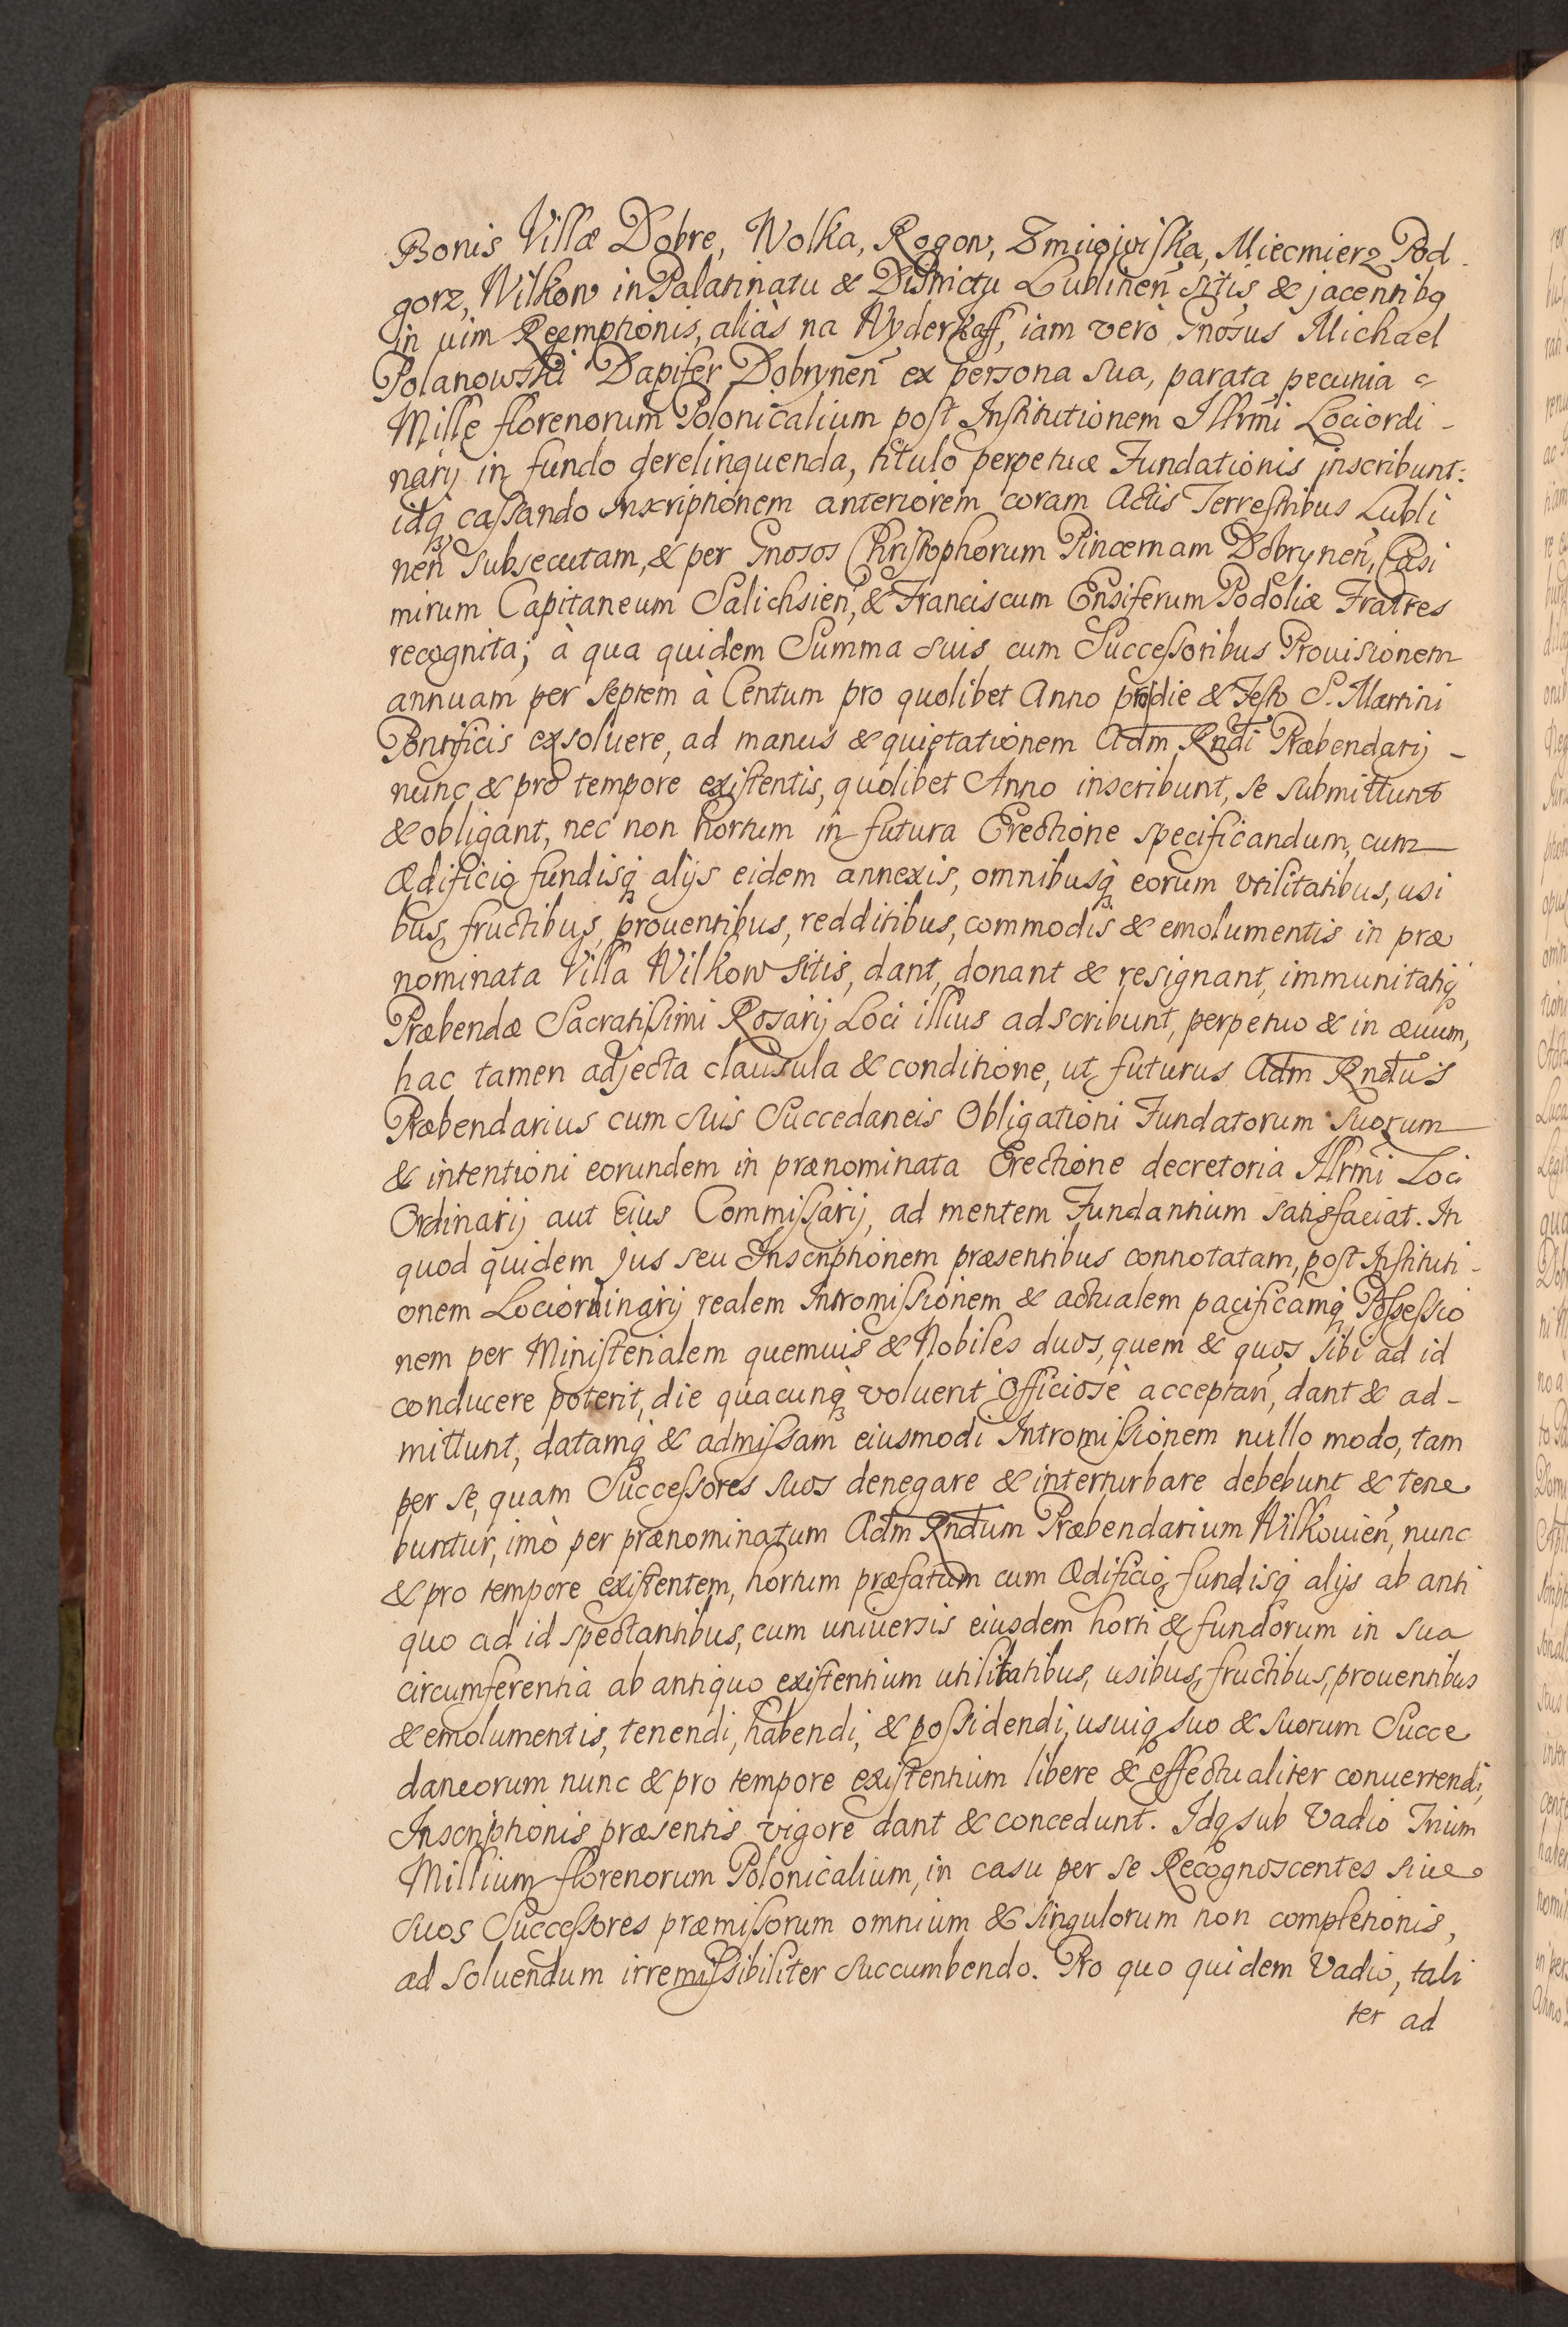 Bonis Villæ Dobre, Wolka, Rogow, Zmijowiska, Miecmierz Pod
gorz, Wilkow in Palatinatu & Districtu Lublinen sitis & jacentibq
in uim Reemptionis, aliàs na Wyderkaff, iam verò Gnosus Michael
Polanowski Dapifer Dobrynen ex persona sua, parata pecunia
Mille florenorum Polonicalium post Institutionem Illrmi Lociordi-
narij in fundo derelinquenda, titulo perpetuæ Fundationis inscribunt:
idq cassando Inscriptionem anteriorem coram Actis Terrestribus Lubli
nen subsecutam, & per Gnosos Christophorum Pincernam Dobrynen, Casi
mirum Capitaneum Salichsien, & Franciscum Ensiferum Podoliæ Fratres
recognita; à qua quidem Summa suis cum Successoribus Prouisionem
annuam per septem à Centum pro quolibet Anno pro die & Festo S. Martini
Pontificis exsoluere, ad manus & quietationem Adm Rndi Præbendarij -
nunc & pro tempore existentis, quolibet Anno inscribunt, se submittunt
& obligant, nec non hortum in futura Erectione specificandum, cum
Ædificio fundisq alijs eidem annexis, omnibusq eorum vtilitatibus, usi
bus, fructibus, prouentibus, redditibus, commodis & emolumentis in præ
nominata Villa Wilkow sitis, dant, donant & resignant, immunitatiq
Præbendæ Sacratissimi Rosarij Loci illius adscribunt, perpetuo & in æuum,
hac tamen adjecta clausula & conditione, ut futurus Adm Rndus
Præbendarius cum suis Succedaneis Obligationi Fundatorum suorum
& intentioni eorundem in prænominata Erectione decretoria Illrmi Loci
Ordinarij aut Eius Commissarij, ad mentem Fundantium satisfaciat. In
quod quidem Jus seu Inscriptionem præsentibus connotatam, post Instituti-
onem Lociordinarij realem Intromissionem & actualem pacificamq Possessio
nem per Ministerialem quemuis & Nobiles duos, quem & quos sibi ad id
conducere poterit, die quacunq voluerit Officiosè acceptan, dant & ad-
mittunt, datamq & admissam eiusmodi Intromissionem nullo modo, tam
per se, quam Successores suos denegare & interturbare debebunt & tene
buntur, imò per prænominatum Adm Rndum Præbendarium Wilkouien, nunc
& pro tempore existentem, hortum præfatum cum Ædificio, fundisq alijs ab anti
quo ad id spectantibus, cum uniuersis eiusdem horti & fundorum in sua
circumferentia ab antiquo existentium utilitatibus, usibus, fructibus, prouentibus
& emolumentis, tenendi, habendi, & possidendi, usuiq suo & suorum Succe
daneorum nunc & pro tempore existentium libere & effectualiter conuertendi,
Inscriptionis præsentis vigore dant & concedunt. Idq sub Vadio Trium
Millium florenorum Polonicalium, in casu per se Recognoscentes siue
suos Successores præmissorum omnium & singulorum non completionis,
ad soluendum irremissibiliter succumbendo. Pro quo quidem Vadio, tali
ter ad